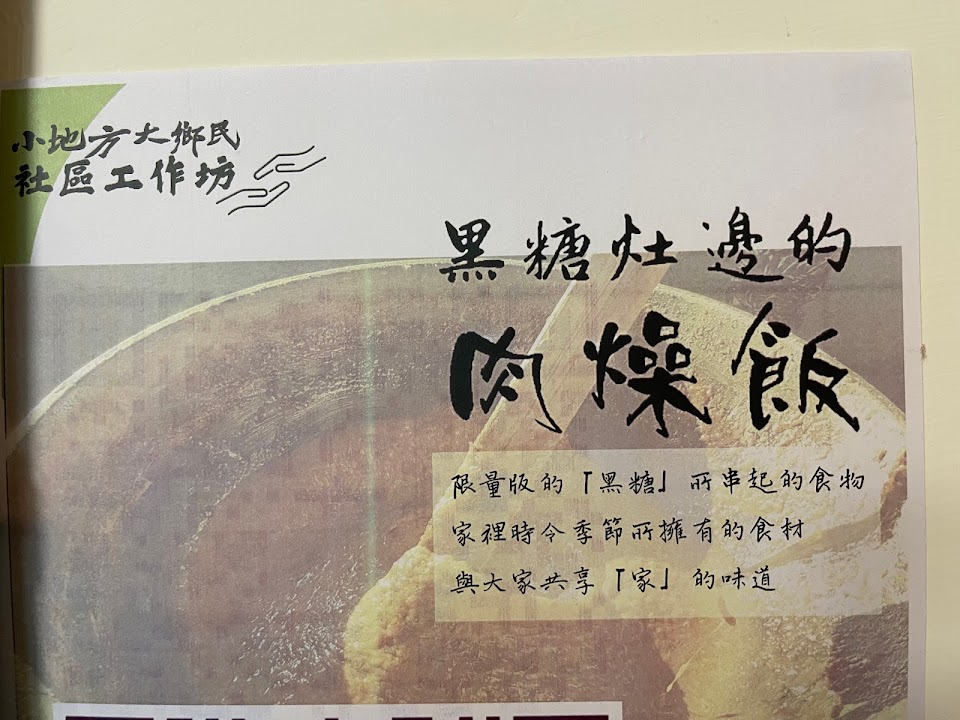 小地方大鄉民
社區工作坊
黑糖灶邊的
肉燥飯
限量版的「黑糖」所串起的食物
家裡時令季節所擁有的食材
與大家共享「家」的味道